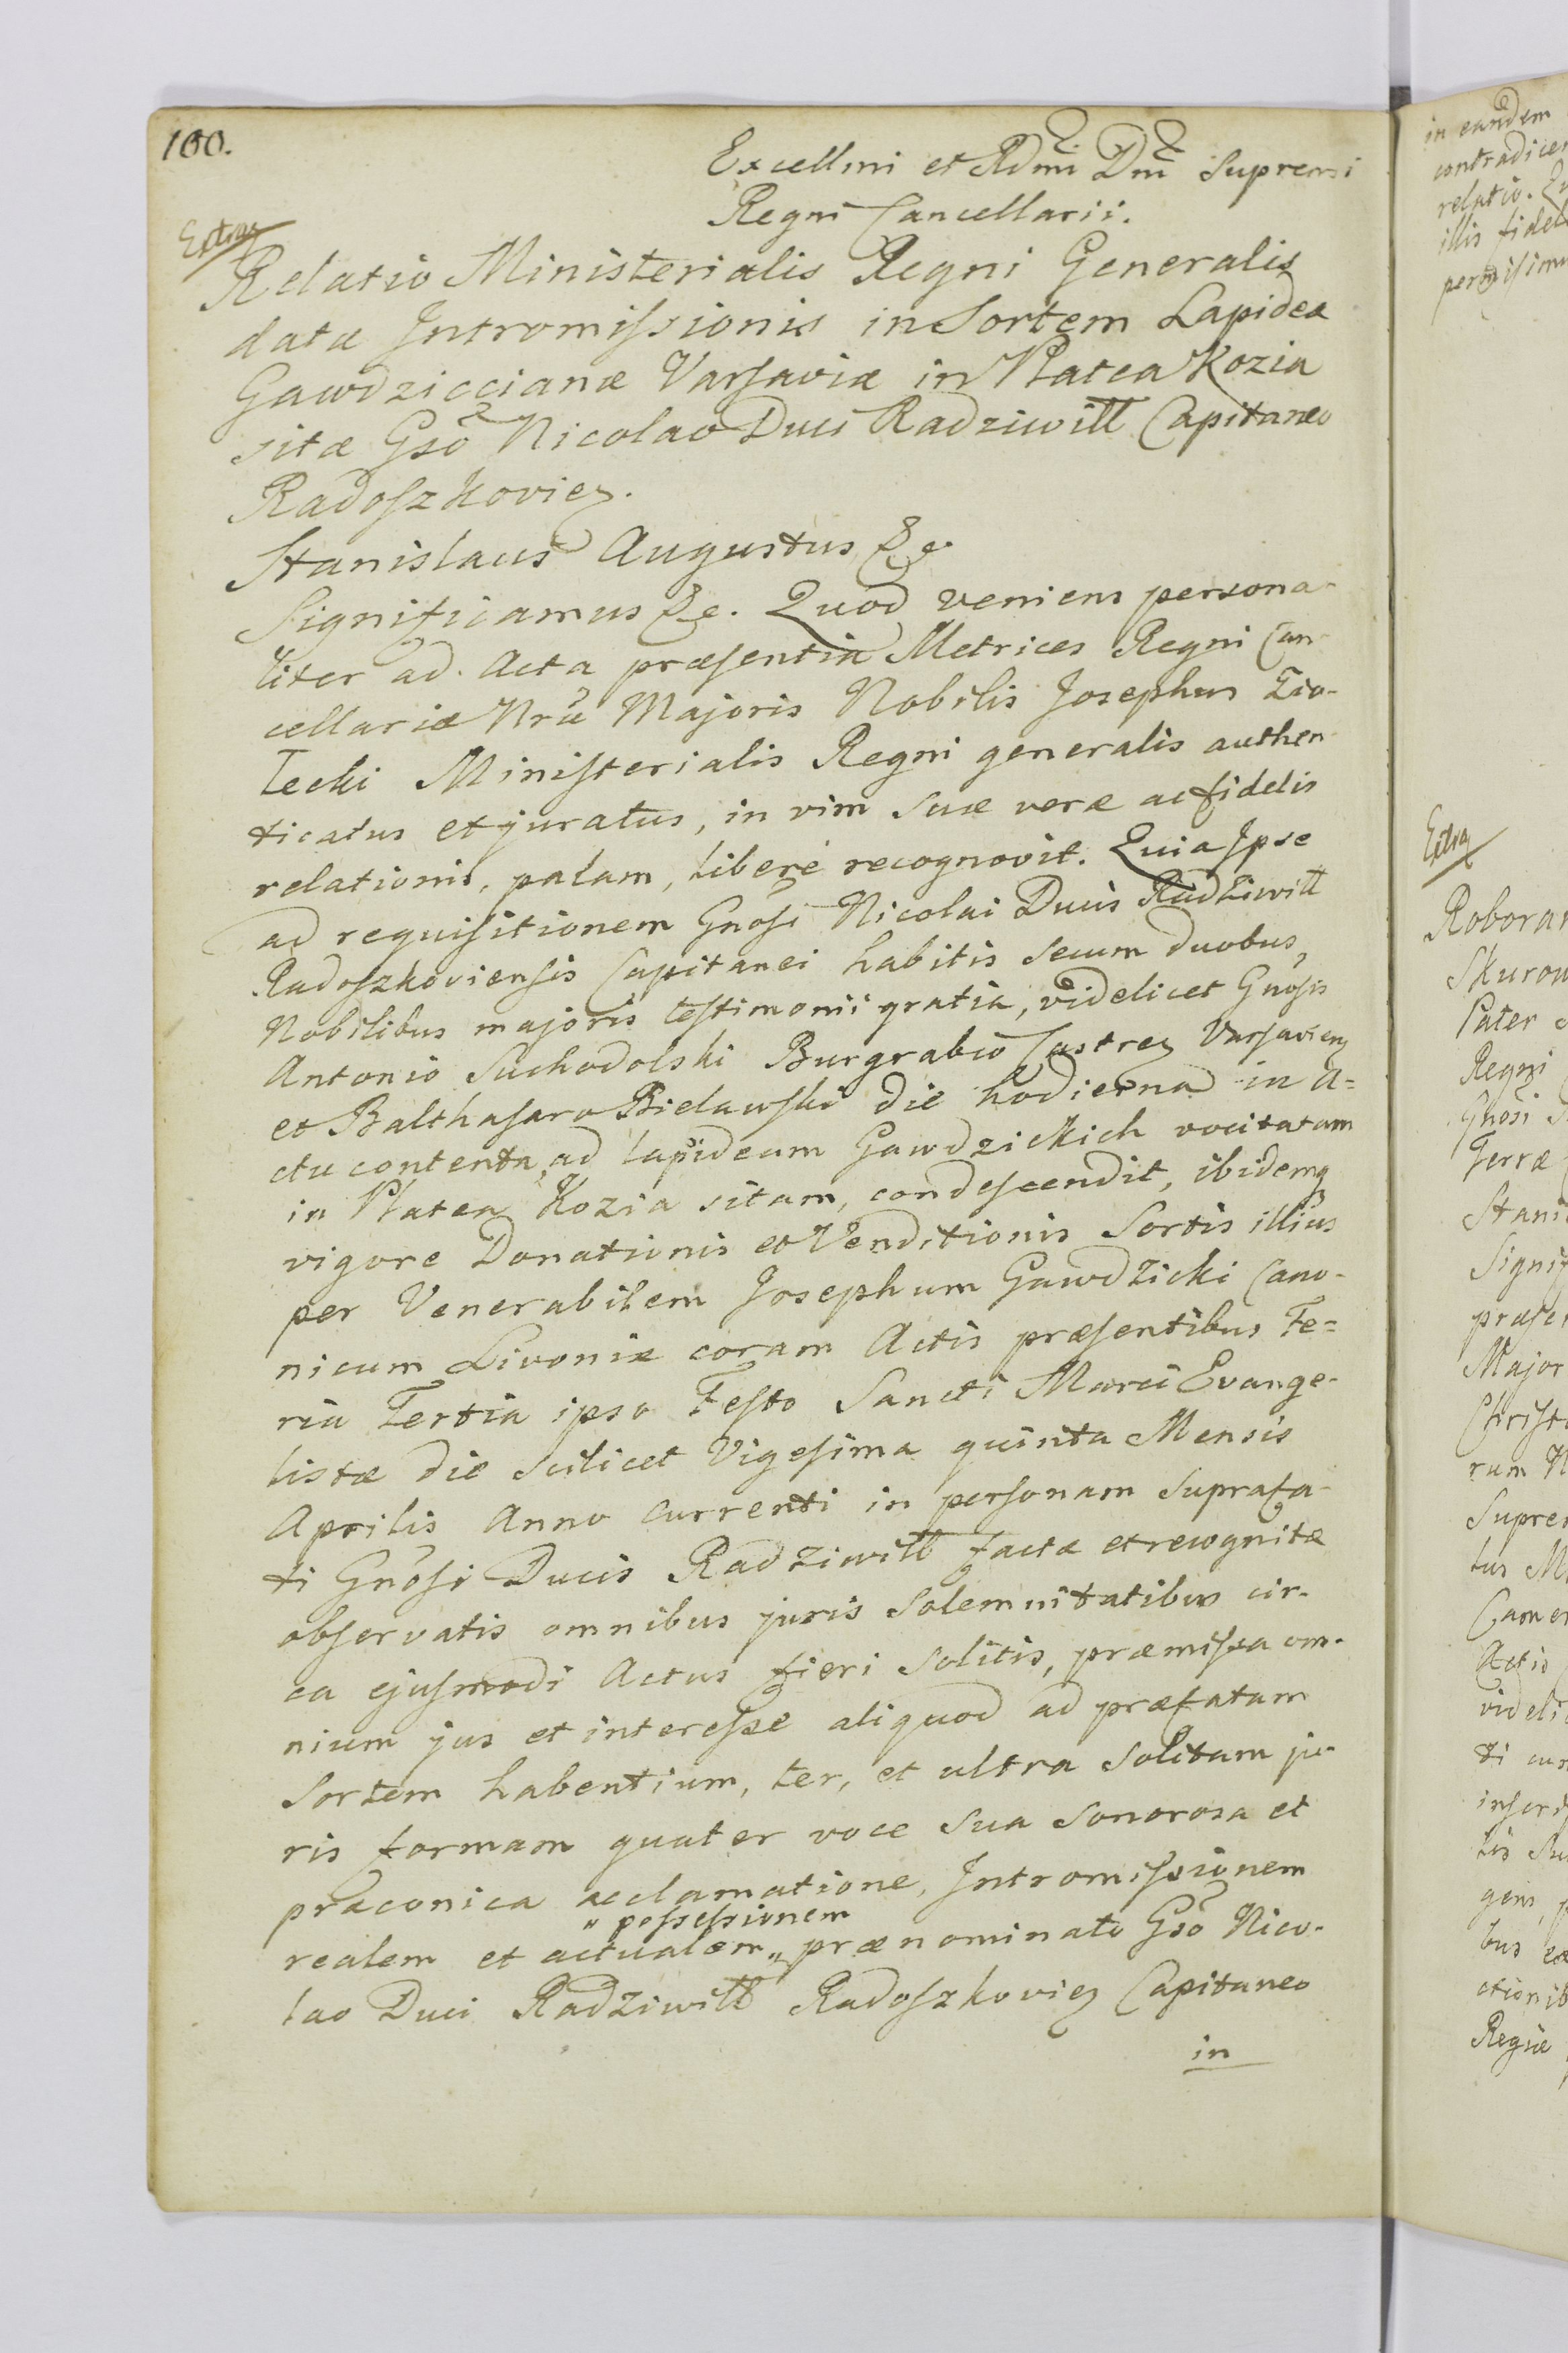 100.
Excellmi et Rdmi Dni Supremi
Regni Cancellarii.
Extra
Relatio Ministerialis Regni Generalis
datæ Intromiſsionis in Sortem Lapideæ
Gawdziccianæ Varſaviæ in Platea Kozia
sitæ Gsō Nicolao Duci Radziwiłł Capitaneo
Radoſzkovien.
Stanislaus Augustus &c.
Significamus &c. Quod veniens persona-
liter ad Acta præſentia Metrices Regni Can-
cellariæ Nræ Majoris Nobilis Josephus Zio-
łecki Miniſterialis Regni generalis authen-
ticatus et juratus, in vim suæ veræ ac fidelis
relationis, palam, liberè recognovit. Quia Ipse
ad requiſitionem Gnōsi Nicolai Ducis Radziwiłł
Radoſzkovienſis Capitanei habitis secum duobus,
Nobilibus majoris teſtimonii gratia, videlicet Gnōsis
Antonio Suchodolski Burgrabio Castren Varſavien
et Balthaſaro Bielawſki die hodierna in A=
ctu contenta, ad lapideam Gawdzickich vocitatam
in Platea Kozia sitam, condeſcendit, ibidemq
vigore Donationis et Venditionis Sortis illius
per Venerabilem Josephum Gawdzicki Cano-
nicum Livoniæ coram Actis præſentibus Fe=
ria Tertia ipso Feſto Sancti Marci Evange-
listæ die scilicet Vigeſima quinta Mensis
Aprilis Anno currenti in perſonam suprafa-
ti Gnōſi Ducis Radziwiłł factæ et recognitæ
obſervatis omnibus juris Solemnitatibus cir-
ca ejuſmodi Actus fieri Solitis, præmiſsa om-
nium jus et intereſse aliquod ad præfatam
Sortem habentium, ter, et ultra Solitam ju-
ris formam quater voce sua sonorosa et
præconica acclamatione, Intromiſsionem
" poſseſsionem
realem et actualem „ prænominato Gsō Nico-
lao Duci Radziwiłł Radoſzkovien Capitaneo
in
in eandem
relatio.
illis
Extra
Pater
Regni
Gnōsi
Terræ
Major
rum
tus
Actis
ti
tis
bus
Regiæ